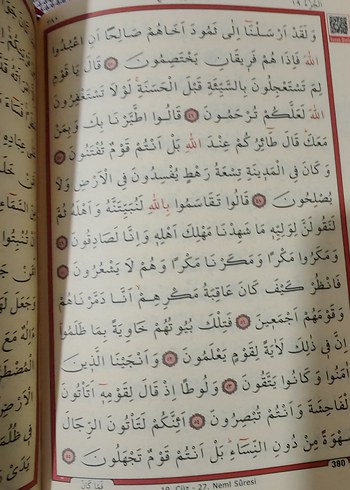 الجزء ١٩
٣٨٠
وَلَقَدْ اَرْسَلْنَٓا اِلٰى ثَمُودَ اَخَاهُمْ صَالِحًا اَنِ اعْبُدُوا
اللّٰهَ فَاِذَا هُمْ فَر۪يقَانِ يَخْتَصِمُونَ ﴿٤٥﴾ قَالَ يَا قَوْمِ
لِمَ تَسْتَعْجِلُونَ بِالسَّيِّئَةِ قَبْلَ الْحَسَنَةِۚ لَوْلَا تَسْتَغْفِرُونَ
اللّٰهَ لَعَلَّكُمْ تُرْحَمُونَ ﴿٤٦﴾ قَالُوا اطَّيَّرْنَا بِكَ وَبِمَنْ
مَعَكَۜ قَالَ طَٓائِرُكُمْ عِنْدَ اللّٰهِ بَلْ اَنْتُمْ قَوْمٌ تُفْتَنُونَ ﴿٤٧﴾
وَكَانَ فِي الْمَد۪ينَةِ تِسْعَةُ رَهْطٍ يُفْسِدُونَ فِي الْاَرْضِ وَلَا
يُصْلِحُونَ ﴿٤٨﴾ قَالُوا تَقَاسَمُوا بِاللّٰهِ لَنُبَيِّتَنَّهُ وَاَهْلَهُ ثُمَّ
لَنَقُولَنَّ لِوَلِيِّه۪ مَا شَهِدْنَا مَهْلِكَ اَهْلِه۪ وَاِنَّا لَصَادِقُونَ ﴿٤٩﴾
وَمَكَرُوا مَكْرًا وَمَكَرْنَا مَكْرًا وَهُمْ لَا يَشْعُرُونَ ﴿٥٠﴾
فَانْظُرْ كَيْفَ كَانَ عَاقِبَةُ مَكْرِهِمْۙ اَنَّا دَمَّرْنَاهُمْ
وَقَوْمَهُمْ اَجْمَع۪ينَ ﴿٥١﴾ فَتِلْكَ بُيُوتُهُمْ خَاوِيَةً بِمَا ظَلَمُواۜ
اِنَّ ف۪ي ذٰلِكَ لَاٰيَةً لِقَوْمٍ يَعْلَمُونَ ﴿٥٢﴾ وَاَنْجَيْنَا الَّذ۪ينَ
اٰمَنُوا وَكَانُوا يَتَّقُونَ ﴿٥٣﴾ وَلُوطًا اِذْ قَالَ لِقَوْمِه۪ٓ اَتَأْتُونَ
الْفَاحِشَةَ وَاَنْتُمْ تُبْصِرُونَ ﴿٥٤﴾ اَئِنَّكُمْ لَتَأْتُونَ الرِّجَالَ
شَهْوَةً مِنْ دُونِ النِّسَٓاءِۜ بَلْ اَنْتُمْ قَوْمٌ تَجْهَلُونَ ﴿٥٥﴾
فَمَا كَانَ
19. Cüz - 27. Neml Sûresi
380